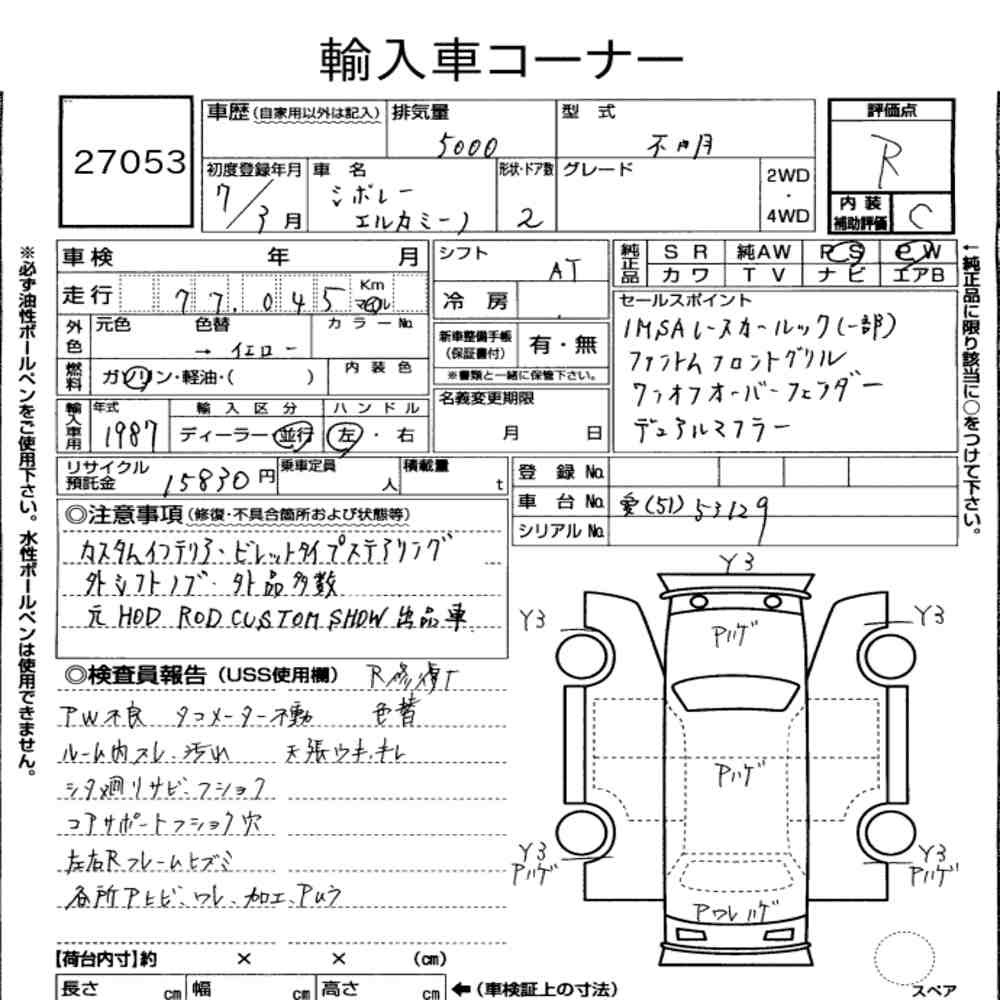 輸入車コーナー
27053
車歴(自家用以外は記入) 排気量 5000 型 式 不明
評価点 R
初度登録年月 7/3月 車 名 シボレー エルカミーノ 形状・ドア数 2 グレード 2WD・4WD
内装補助評価 C
車検 年 月 シフト AT
純正品 SR 純AW PS PW
カワ TV ナビ エアB
走行 77,045 Km マイル 冷房
外色 元色 色替 → イエロー カラーNo.
燃料 ガソリン・軽油・( ) 内装色
新車整備手帳(保証書付) 有・無
※書類と一緒に保管下さい。
セールスポイント
IMSAレースカールック(一部)
ファントムフロントグリル
ワンオフオーバーフェンダー
デュアルマフラー
輸入車用 年式 1987 輸入区分 ディーラー・並行 ハンドル 左・右
名義変更期限 月 日
リサイクル預託金 15830円 乗車定員 人 積載量 t
登録No.
車台No. 愛(51)53129
シリアルNo.
◎注意事項(修復・不具合箇所および状態等)
カスタムインテリア・ビレットタイプステアリング
外シフトノブ・外品多数
元 HOD ROD CUSTOM SHOW 出品車
◎検査員報告(USS使用欄) R修復丁
PW不良 タコメーター不動 色替
ルーム内スレ、汚れ 天張ウキ、キレ
シタ廻りサビ、フショク
コアサポートフショク穴
左右Rフレームヒズミ
各所アトヒビ、ワレ、加工、Pムラ
Y3
Y3 Y3
Pハゲ
Pハゲ
Y3 Pハゲ
Y3 Pハゲ
Pワレハゲ
スペア
【荷台内寸】約 × × (cm)
長さ cm 幅 cm 高さ cm ←(車検証上の寸法)
※必ず油性ボールペンをご使用下さい。水性ボールペンは使用できません。
←純正品に限り該当に○をつけて下さい。